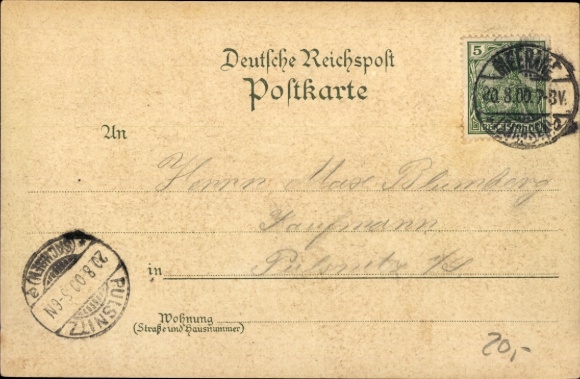 Deutsche Reichspost
Postkarte
5
20.8.00.7-8V.
An
Herrn Max Blumberg
Kaufmann
in Pulsnitz i/S
PULSNITZ
20.8.00.5-6N
(SACHSEN)
Wohnung
(Straße und Hausnummer)
20,-